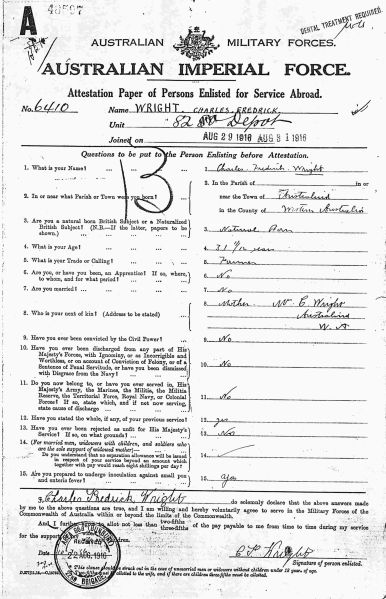 A
DENTAL TREATMENT REQUIRED.
AUSTRALIAN MILITARY FORCES.
AUSTRALIAN IMPERIAL FORCE.
Attestation Paper of Persons Enlisted for Service Abroad.
No. 6410 Name WRIGHT. CHARLES FREDRICK
Unit 82 Depot
Joined on AUG 29 1916 AUG 31 1916
Questions to be put to the Person Enlisting before Attestation.
13
1. What is your Name? 1. Charles Fredrick Wright
2. In or near what Parish or Town were you born? 2. In the Parish of
near the Town of
in the County of Western Australia
3. Are you a natural born British Subject or a Naturalized
British Subject? (N.B.—If the latter, papers to be
shown.) 3. Natural Born
4. What is your Age? 4. 31
5. What is your Trade or Calling? 5. Farmer
6. Are you, or have you been, an Apprentice? If so, where,
to whom, and for what period? 6. No
7. Are you married? 7. No
8. Who is your next of kin? (Address to be stated) 8. Mother. C Wright
W. A
9. Have you ever been convicted by the Civil Power? 9. No
10. Have you ever been discharged from any part of His
Majesty's Forces, with Ignominy, or as Incorrigible and
Worthless, or on account of Conviction of Felony, or of a
Sentence of Penal Servitude, or have you been dismissed
with Disgrace from the Navy? 10. No
11. Do you now belong to, or have you ever served in, His
Majesty's Army, the Marines, the Militia, the Militia
Reserve, the Territorial Force, Royal Navy, or Colonial
Forces? If so, state which, and if not now serving,
state cause of discharge 11. No
12. Have you stated the whole, if any, of your previous service? 12. yes
13. Have you ever been rejected as unfit for His Majesty's
Service? (If so, on what grounds) 13. No
14. (For married men, widowers with children, and soldiers who
are the sole support of widowed mother)—
Do you understand that no separation allowance will be issued
in respect of your service beyond an amount which
together with pay would reach eight shillings per day? 14.
15. Are you prepared to undergo inoculation against small pox
and enteric fever? 15. Yes
I, Charles Fredrick Wright do solemnly declare that the above answers made
by me to the above questions are true, and I am willing and hereby voluntarily agree to serve in the Military Forces of the
Commonwealth of Australia within or beyond the limits of the Commonwealth.
And I further agree to allot not less than two-fifths three-fifths of the pay payable to me from time to time during my service
for the support of
RECEIVED
22 AUG 1916
BRIGADE
Date
C F Wright
Signature of person enlisted.
This clause should be struck out in the case of unmarried men or widowers without children under 18 years of age.